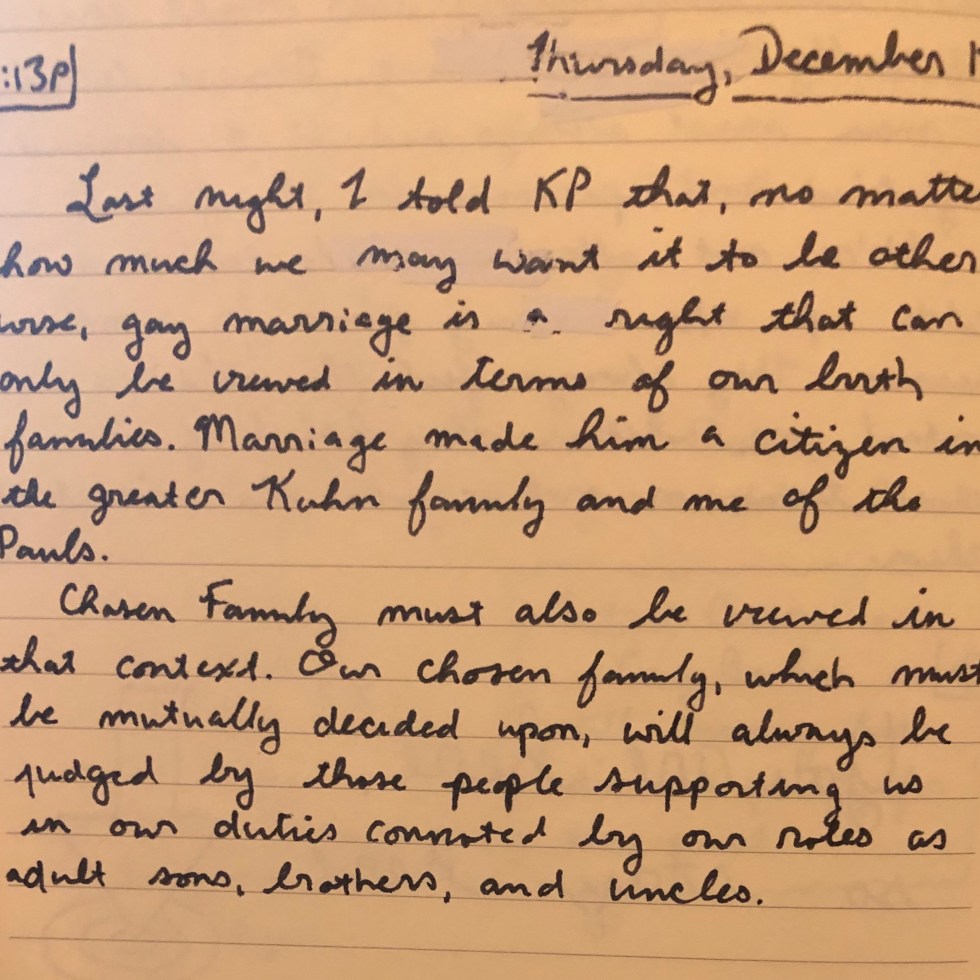 :13P
Thursday, December 1
Last night, I told KP that, no matte
how much we may want it to be other
wise, gay marriage is a right that can
only be viewed in terms of our birth
families. Marriage made him a citizen in
the greater Kuhn family and me of the
Pauls.
Chosen Family must also be viewed in
that context. Our chosen family, which must
be mutually decided upon, will always be
judged by those people supporting us
in our duties connoted by our roles as
adult sons, brothers, and uncles.